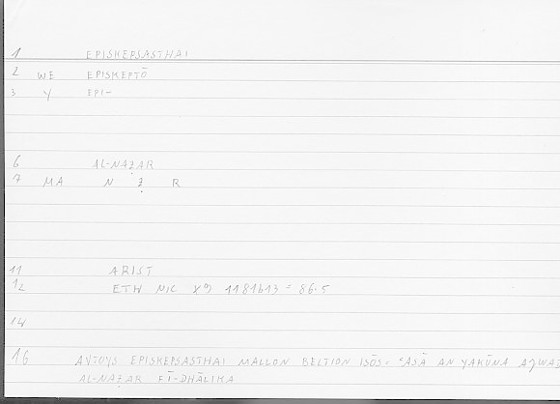 1 EPISKEPSASTHAI
2 WE EPISKEPTŌ
3 Y EPI-
6 AL-NAẒAR
7 MA N Ẓ R
11 ARIST
12 ETH NIC X9 1181b13 = 86.5
14
16 AYTOYS EPISKEPSASTHAI MALLON BELTION ISŌS. ʿASĀ AN YAKŪNA
AL-NAẒAR FĪ-DHĀLIKA